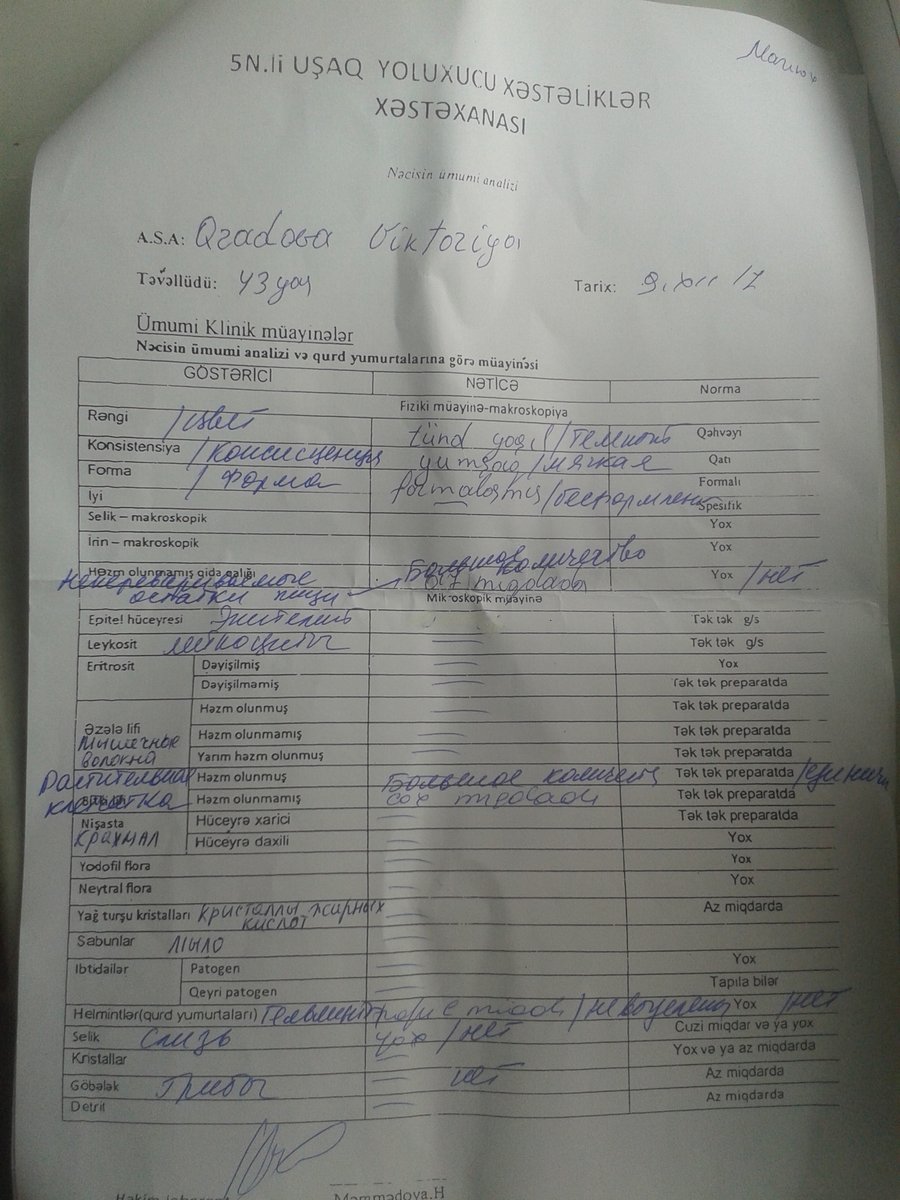 5N.li UŞAQ YOLUXUCU XƏSTƏLİKLƏR
XƏSTƏXANASI
Nəcisin ümumi analizi
A.S.A: Qradova Viktoriya
Təvəllüdü: 43 yaş
Tarix: 9.XII 17
Ümumi Klinik müayinələr
Nəcisin ümumi analizi və qurd yumurtalarına görə müayinəsi
GÖSTƏRİCİ NƏTİCƏ Norma
Fiziki müayinə-makroskopiya
Rəngi /цвет tünd yaşıl/темный Qəhvəyi
Konsistensiya /консистенция yumşaq/мягкая Qatı
Forma /форма Formalı
İyi Spesifik
Selik – makroskopik Yox
İrin – makroskopik Yox
Həzm olunmamış qida qalığı Большое количество Yox /нет
остатки пищи miqdada
Mikroskopik müayinə
Epitel hüceyresi Эпителий Tək tək g/s
Leykosit лейкоциты Tək tək g/s
Eritrosit Dəyişilmiş Yox
Dəyişilməmiş Tək tək preparatda
Həzm olunmuş Tək tək preparatda
Əzələ lifi Мышечные волокна Həzm olunmamış Tək tək preparatda
Yarım həzm olunmuş Tək tək preparatda
Растительная Həzm olunmuş Большое количеств Tək tək preparatda
клетчатка Həzm olunmamış çox miqdada Tək tək preparatda
Nişasta Hüceyrə xarici Tək tək preparatda
Крахмал Hüceyrə daxili Yox
Yodofil flora Yox
Neytral flora Yox
Yağ turşu kristalları Кристаллы жирных кислот Az miqdarda
Sabunlar мыло
Ibtidailər Patogen Yox
Qeyri patogen Tapıla bilər
Helmintlər(qurd yumurtaları) Yox /нет
Selik слизь yox /нет Cuzi miqdar və ya yox
Kristallar Yox və ya az miqdarda
Göbələk Грибы нет Az miqdarda
Detrit Az miqdarda
Məmmədova.H